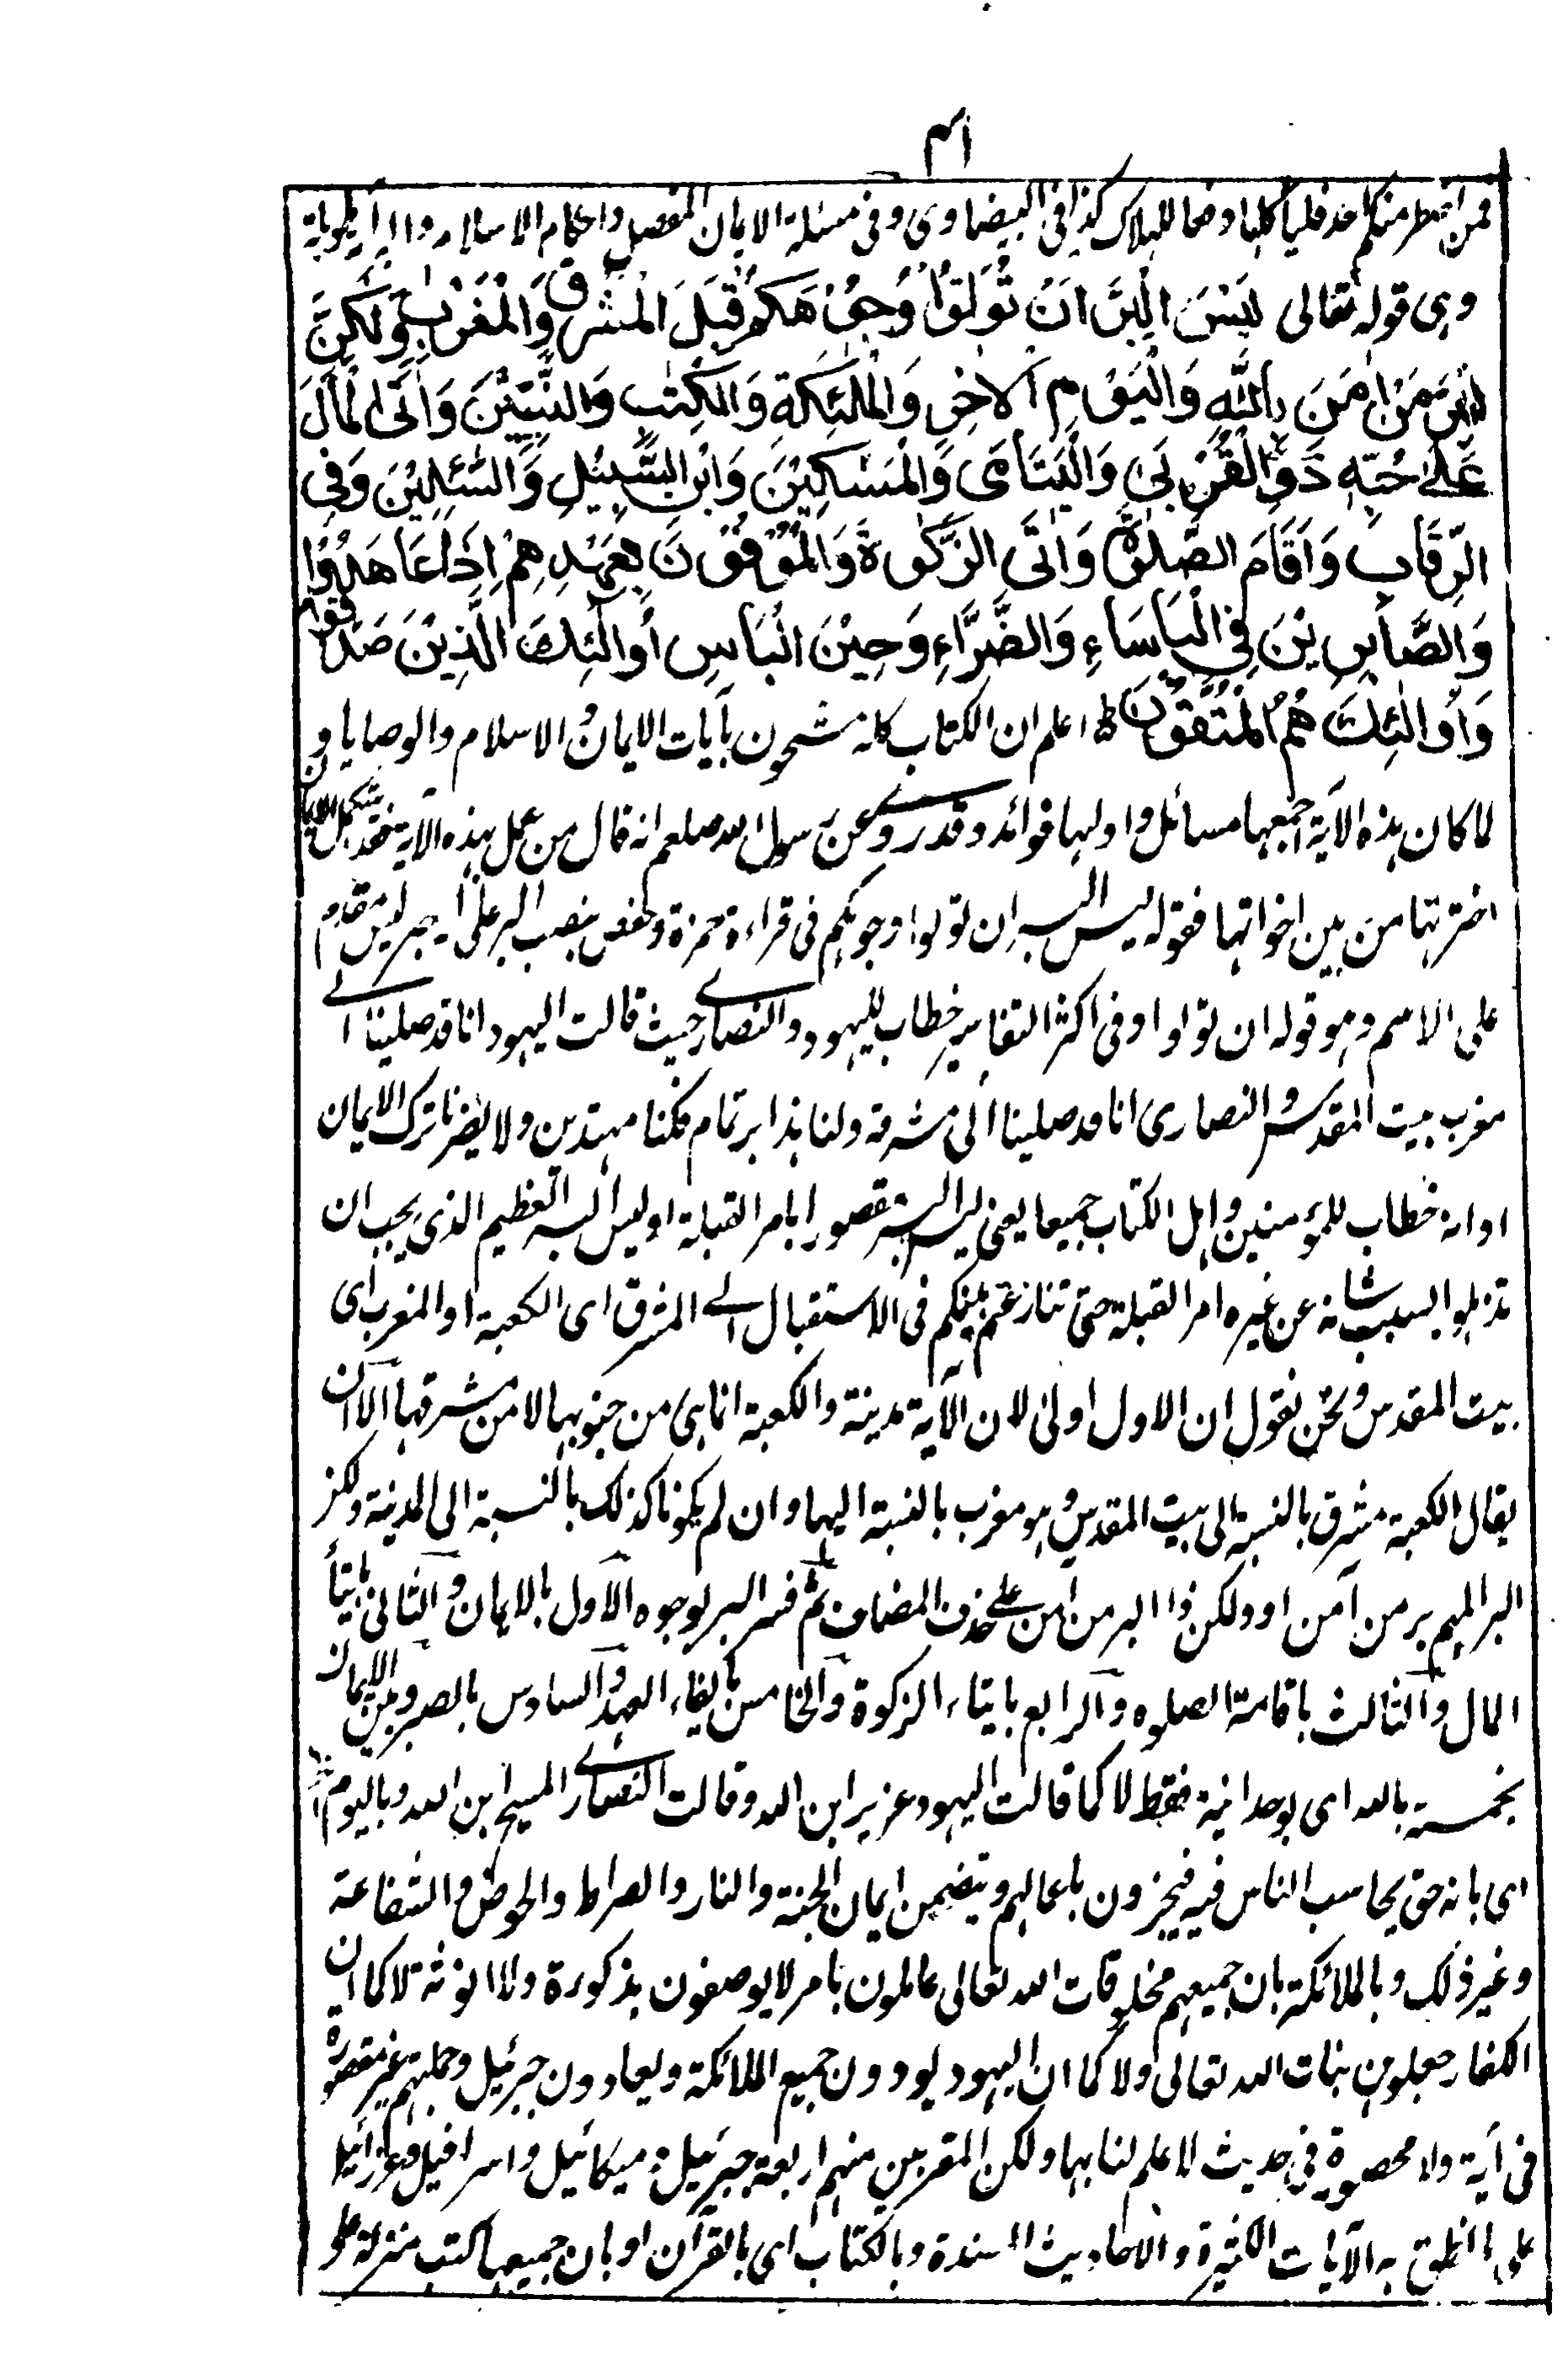 ٤١
فمن اضطر منكم احد فليأكلها دفعا للهلاك كذا فى البيضاوى وفى مسئلة الايمان المفصل واحكام الاسلام
وهى قوله تعالى لَيْسَ الْبِرَّ اَنْ تُوَلُّوْا وُجُوْهَكُمْ قِبَلَ الْمَشْرِقِ وَالْمَغْرِبِ وَلٰكِنَّ
الْبِرَّ مَنْ اٰمَنَ بِاللّٰهِ وَالْيَوْمِ الْاٰخِرِ وَالْمَلٰئِكَةِ وَالْكِتٰبِ وَالنَّبِيّٖنَ وَاٰتَى الْمَالَ
عَلٰى حُبِّهٖ ذَوِى الْقُرْبٰى وَالْيَتَامٰى وَالْمَسٰكِيْنَ وَابْنَ السَّبِيْلِ وَالسَّئِلِيْنَ وَفِى
الرِّقَابِ وَاَقَامَ الصَّلٰوةَ وَاٰتَى الزَّكٰوةَ وَالْمُوْفُوْنَ بِعَهْدِهِمْ اِذَا عَاهَدُوْا
وَالصَّابِرِيْنَ فِى الْبَاْسَاءِ وَالضَّرَّاءِ وَحِيْنَ الْبَاْسِ اُولٰئِكَ الَّذِيْنَ صَدَقُوْا
وَاُولٰئِكَ هُمُ الْمُتَّقُوْنَ ط اعلم ان الكتاب كله مشحون بآيات الايمان والاسلام والوصايا و
لما كان هذه الآية اجمعها مسائل واوليها فوائد وقد روى عن رسول الله صلعم انه قال من عمل بهذه الآية فقد استكمل الايمان
اخترتها من بين اخواتها فقوله ليس البر ان تولوا وجوهكم فى قراءة حمزة وحفص بنصب البر على انه خبر ليس مقدم
على الاسم وهو قوله ان تولوا وفى اكثر التفاسير خطاب لليهود والنصارى حيث قالت اليهود انا قد صلينا الى
مغرب بيت المقدس والنصارى انا قد صلينا الى مشرقه ولنا هذا بر تمام فكنا مهتدين ولا يضرنا ترك الايمان
او انه خطاب للمؤمنين واهل الكتاب جميعا يعنى ليس البر مقصورا بامر القبلة او ليس البر العظيم الذى يجب ان
تذهلوا بسبب شانه عن غيره امر القبلة حتى تنازعتم بينكم فى الاستقبال الى المشرق اى الكعبة او المغرب اى
بيت المقدس ونحن نقول ان الاول اولى لان الآية مدينة والكعبة انما هى من جنوبها لا من مشرقها الا ان
يقال الكعبة مشرق بالنسبة الى بيت المقدس وهو مغرب بالنسبة اليها وان لم يكونا كذلك بالنسبة الى المدينة ولكن
البر المهم بر من آمن او ولكن ذا البر من آمن على حذف المضاف ثم فسر البر بوجوه الاول بالايمان والثانى بايتاء
المال والثالث باقامة الصلوة والرابع بايتاء الزكوة والخامس بايفاء العهد والسادس بالصبر وبين الايمان
بخمسة بالله اى بوحدانية فقط لا كما قالت اليهود عزير ابن الله وقالت النصارى المسيح ابن الله وباليوم الآخر
اى بانه حق يحاسب الناس فيه فيجزون باعمالهم ويتضمن ايمان الجنة والنار والصراط والحوض والشفاعة
وغير ذلك وبالملائكة بان جميعهم مخلوقات الله تعالى عاملون بامره لا يوصفون بذكورة ولا انوثة لا كما ان
الكفار جعلوهن بنات الله تعالى ولا كما ان اليهود يودون جميع الملائكة ويعادون جبرئيل وجملتهم غير مقصورة
فى آية ولا محصورة فى حديث لا علم لنا بها ولكن المقربين منهم اربعة جبرئيل وميكائيل واسرافيل وعزرائيل
على ما نطق به الآيات الكثيرة والاحاديث المسندة وبالكتاب اى بالقرآن او بان جميعها كتب منزلة على